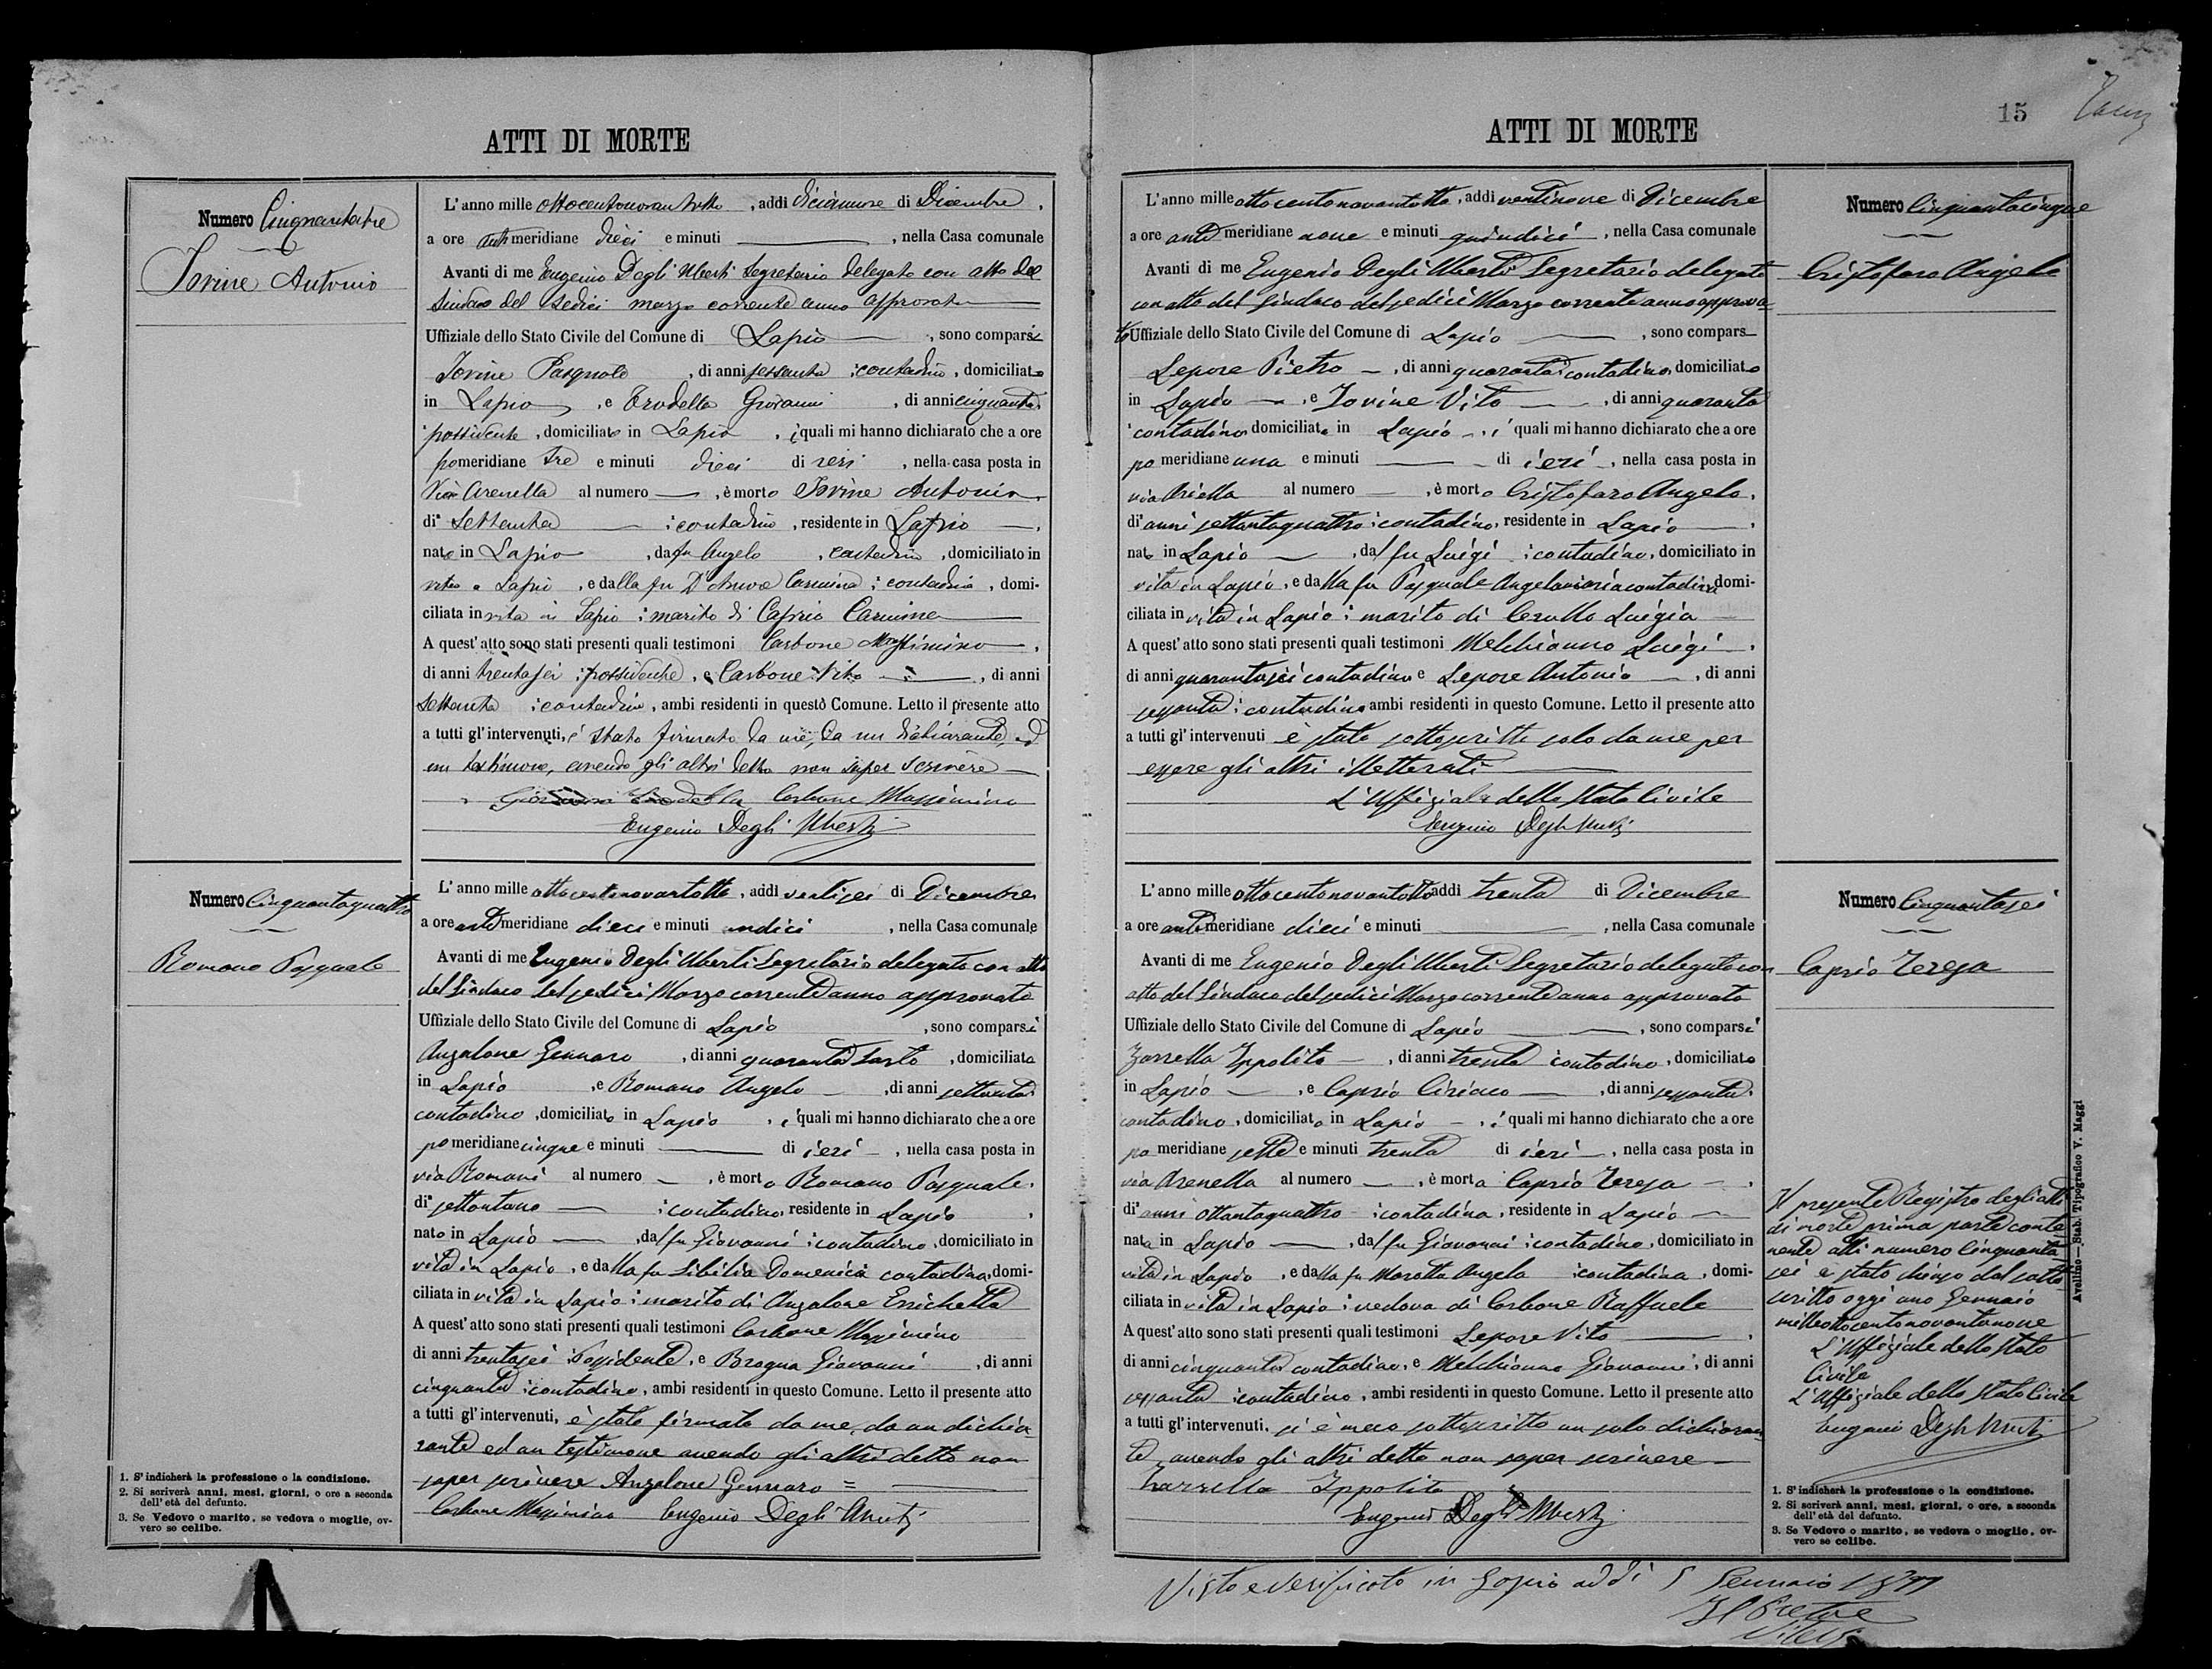 ATTI DI MORTE
Numero Cinquantatre
Iovine Antonio
L'anno mille ottocentonovantotto, addì diciannove di Dicembre,
a ore antimeridiane dieci e minuti —, nella Casa comunale
Avanti di me Eugenio Degli Uberti Segretario delegato con atto del
Sindaco del sedici marzo corrente anno approvato
Uffiziale dello Stato Civile del Comune di Lapio —, sono comparsi
Iovine Pasquale, di anni sessanta, contadino, domiciliato
in Lapio, e Trodella Giovanni, di anni cinquanta,
possidente, domiciliato in Lapio, i quali mi hanno dichiarato che a ore
pomeridiane tre e minuti dieci di ieri, nella casa posta in
Via Arenella al numero —, è morto Iovine Antonio,
di settanta — contadino, residente in Lapio —,
nato in Lapio, da fu Angelo, contadino, domiciliato in
vita a Lapio, e dalla fu Carmina, contadina, domi-
ciliata in vita in Lapio, marito di Caprio Carmina
A quest'atto sono stati presenti quali testimoni Carbone Massimino,
di anni trentasei, possidente, e Carbone Vito —, di anni
settanta, contadino, ambi residenti in questo Comune. Letto il presente atto
a tutti gl'intervenuti, è stato firmato da me, da un dichiarante, ed
un testimone, avendo gli altri detto non saper scrivere —
Giovanni Trodella Carbone Massimino
Eugenio Degli Uberti
Numero Cinquantaquattro
Romano Pasquale
L'anno mille ottocentonovantotto, addì ventisei di Dicembre
a ore antimeridiane dieci e minuti undici, nella Casa comunale
Avanti di me Eugenio Degli Uberti Segretario delegato con atto
del Sindaco del sedici Marzo corrente anno approvato
Uffiziale dello Stato Civile del Comune di Lapio, sono comparsi
Anzalone Gennaro, di anni quaranta sarto, domiciliato
in Lapio, e Romano Angelo —, di anni settanta
contadino, domiciliato in Lapio, i quali mi hanno dichiarato che a ore
pomeridiane cinque e minuti — di ieri —, nella casa posta in
via Romani al numero —, è morto Romano Pasquale,
di — contadino, residente in Lapio,
nato in Lapio —, dal fu Giovanni, contadino, domiciliato in
vita in Lapio, e dalla fu Sibilia Domenica contadina, domi-
ciliata in vita in Lapio, marito di Anzalone Errichetta
A quest'atto sono stati presenti quali testimoni Carbone Massimino
di anni trentasei possidente, e Bragna Giovanni, di anni
cinquanta, contadino, ambi residenti in questo Comune. Letto il presente atto
a tutti gl'intervenuti, è stato firmato da me, da un dichia-
rante ed un testimone avendo gli altri detto non
saper scrivere Anzalone Gennaro =
Carbone Massimino Eugenio Degli Uberti
1. S'indicherà la professione o la condizione.
2. Si scriverà anni, mesi, giorni, o ore a seconda
dell'età del defunto.
3. Se Vedovo o marito, se vedova o moglie, ov-
vero se celibe.
15
ATTI DI MORTE
Numero Cinquantacinque
Cristofaro Angelo
L'anno mille ottocentonovantotto, addì ventinove di Dicembre
a ore antimeridiane nove e minuti quindici, nella Casa comunale
Avanti di me Eugenio Degli Uberti Segretario delegato
con atto del Sindaco del sedici Marzo corrente anno approva-
to Uffiziale dello Stato Civile del Comune di Lapio —, sono compars—
Lepore Pietro —, di anni quaranta, contadino, domiciliato
in Lapio —, e Iovine Vito —, di anni quaranta
contadino, domiciliato in Lapio —, i quali mi hanno dichiarato che a ore
pomeridiane una e minuti — di ieri —, nella casa posta in
via al numero —, è morto Cristofaro Angelo,
di anni settantaquattro, contadino, residente in Lapio —,
nato in Lapio —, dal fu Luigi, contadino, domiciliato in
vita in Lapio, e dalla fu Pasquale Angelamaria contadina, domi-
ciliata in vita in Lapio, marito di Cerullo Luigia
A quest'atto sono stati presenti quali testimoni Melchionno Luigi —,
di anni quarantasei contadino e Lepore Antonio —, di anni
sessanta, contadino, ambi residenti in questo Comune. Letto il presente atto
a tutti gl'intervenuti è stato sottoscritto solo da me per
essere gli altri illetterati
L'Uffiziale dello Stato Civile
Eugenio Degli Uberti
Numero Cinquantasei
Caprio Teresa
L'anno mille ottocentonovantotto addì trenta di Dicembre
a ore antimeridiane dieci e minuti —, nella Casa comunale
Avanti di me Eugenio Degli Uberti Segretario delegato con
atto del Sindaco del sedici Marzo corrente anno approvato
Uffiziale dello Stato Civile del Comune di Lapio —, sono comparsi
Zarrella Ippolito —, di anni trenta contadino, domiciliato
in Lapio —, e Caprio Ciriaco —, di anni sessanta
contadino, domiciliato in Lapio —, i quali mi hanno dichiarato che a ore
pomeridiane sette e minuti trenta di ieri —, nella casa posta in
via Arenella al numero —, è morta Caprio Teresa —,
di anni ottantaquattro contadina, residente in Lapio —
nata in Lapio —, dal fu Giovanni, contadino, domiciliato in
vita in Lapio, e dalla fu Marotta Angela contadina, domi-
ciliata in vita in Lapio, vedova di Carbone Raffaele
A quest'atto sono stati presenti quali testimoni Lepore Vito —,
di anni cinquanta contadino, e Melchionno Giovanni, di anni
sessanta contadino, ambi residenti in questo Comune. Letto il presente atto
a tutti gl'intervenuti, si è meco sottoscritto un solo dichiaran-
te avendo gli altri detto non saper scrivere —
Zarrella Ippolito
Eugenio Degli Uberti
Il presente Registro degli atti
di morte prima parte conte
nente atti numero Cinquanta
sei è stato chiuso dal sotto
scritto oggi uno Gennaio
milleottocentonovantanove
L'Uffiziale dello Stato
Civile
L'Uffiziale dello Stato Civile
Eugenio Degli Uberti
1. S'indicherà la professione o la condizione.
2. Si scriverà anni, mesi, giorni, o ore, a seconda
dell'età del defunto.
3. Se Vedovo o marito, se vedova o moglie, ov-
vero se celibe.
Avellino—Stab. Tipografico V. Maggi
Visto e verificato in Lapio addì 5 Gennaio 1899
Il Pretore